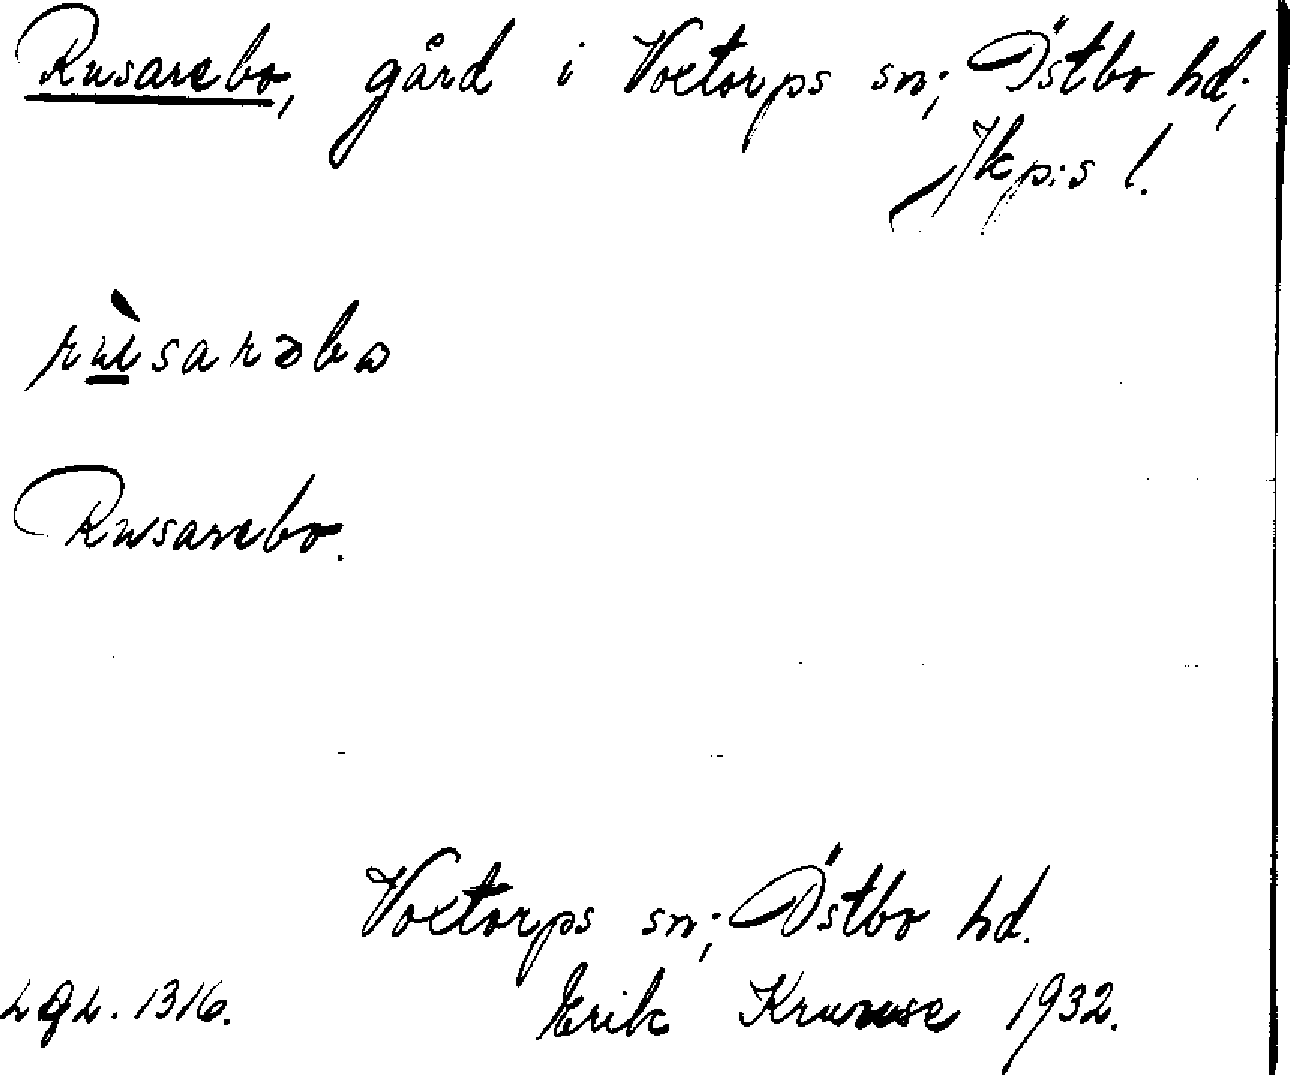 Rusarebo, gård i Voxtorps sn; Östbo hd;
Jkpis l.
rùsarəbo
Rusarebo.
Voxtorps sn; Östbo hd.
LGL. 1316. Erik Kruuse 1932.